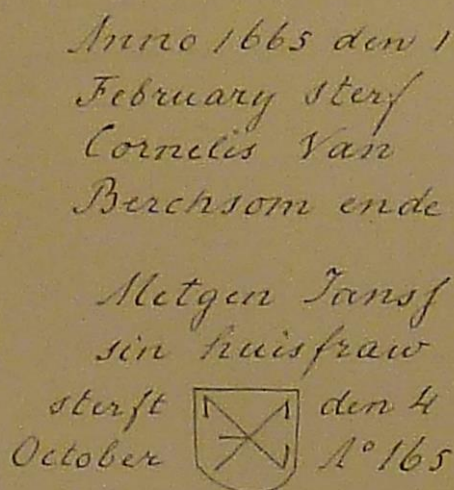 Anno 1665 den 1
February sterf
Cornelis Van
Berchsom ende
Metgen Jansf
sin huisfraw
sterft den 4
October Aº 165